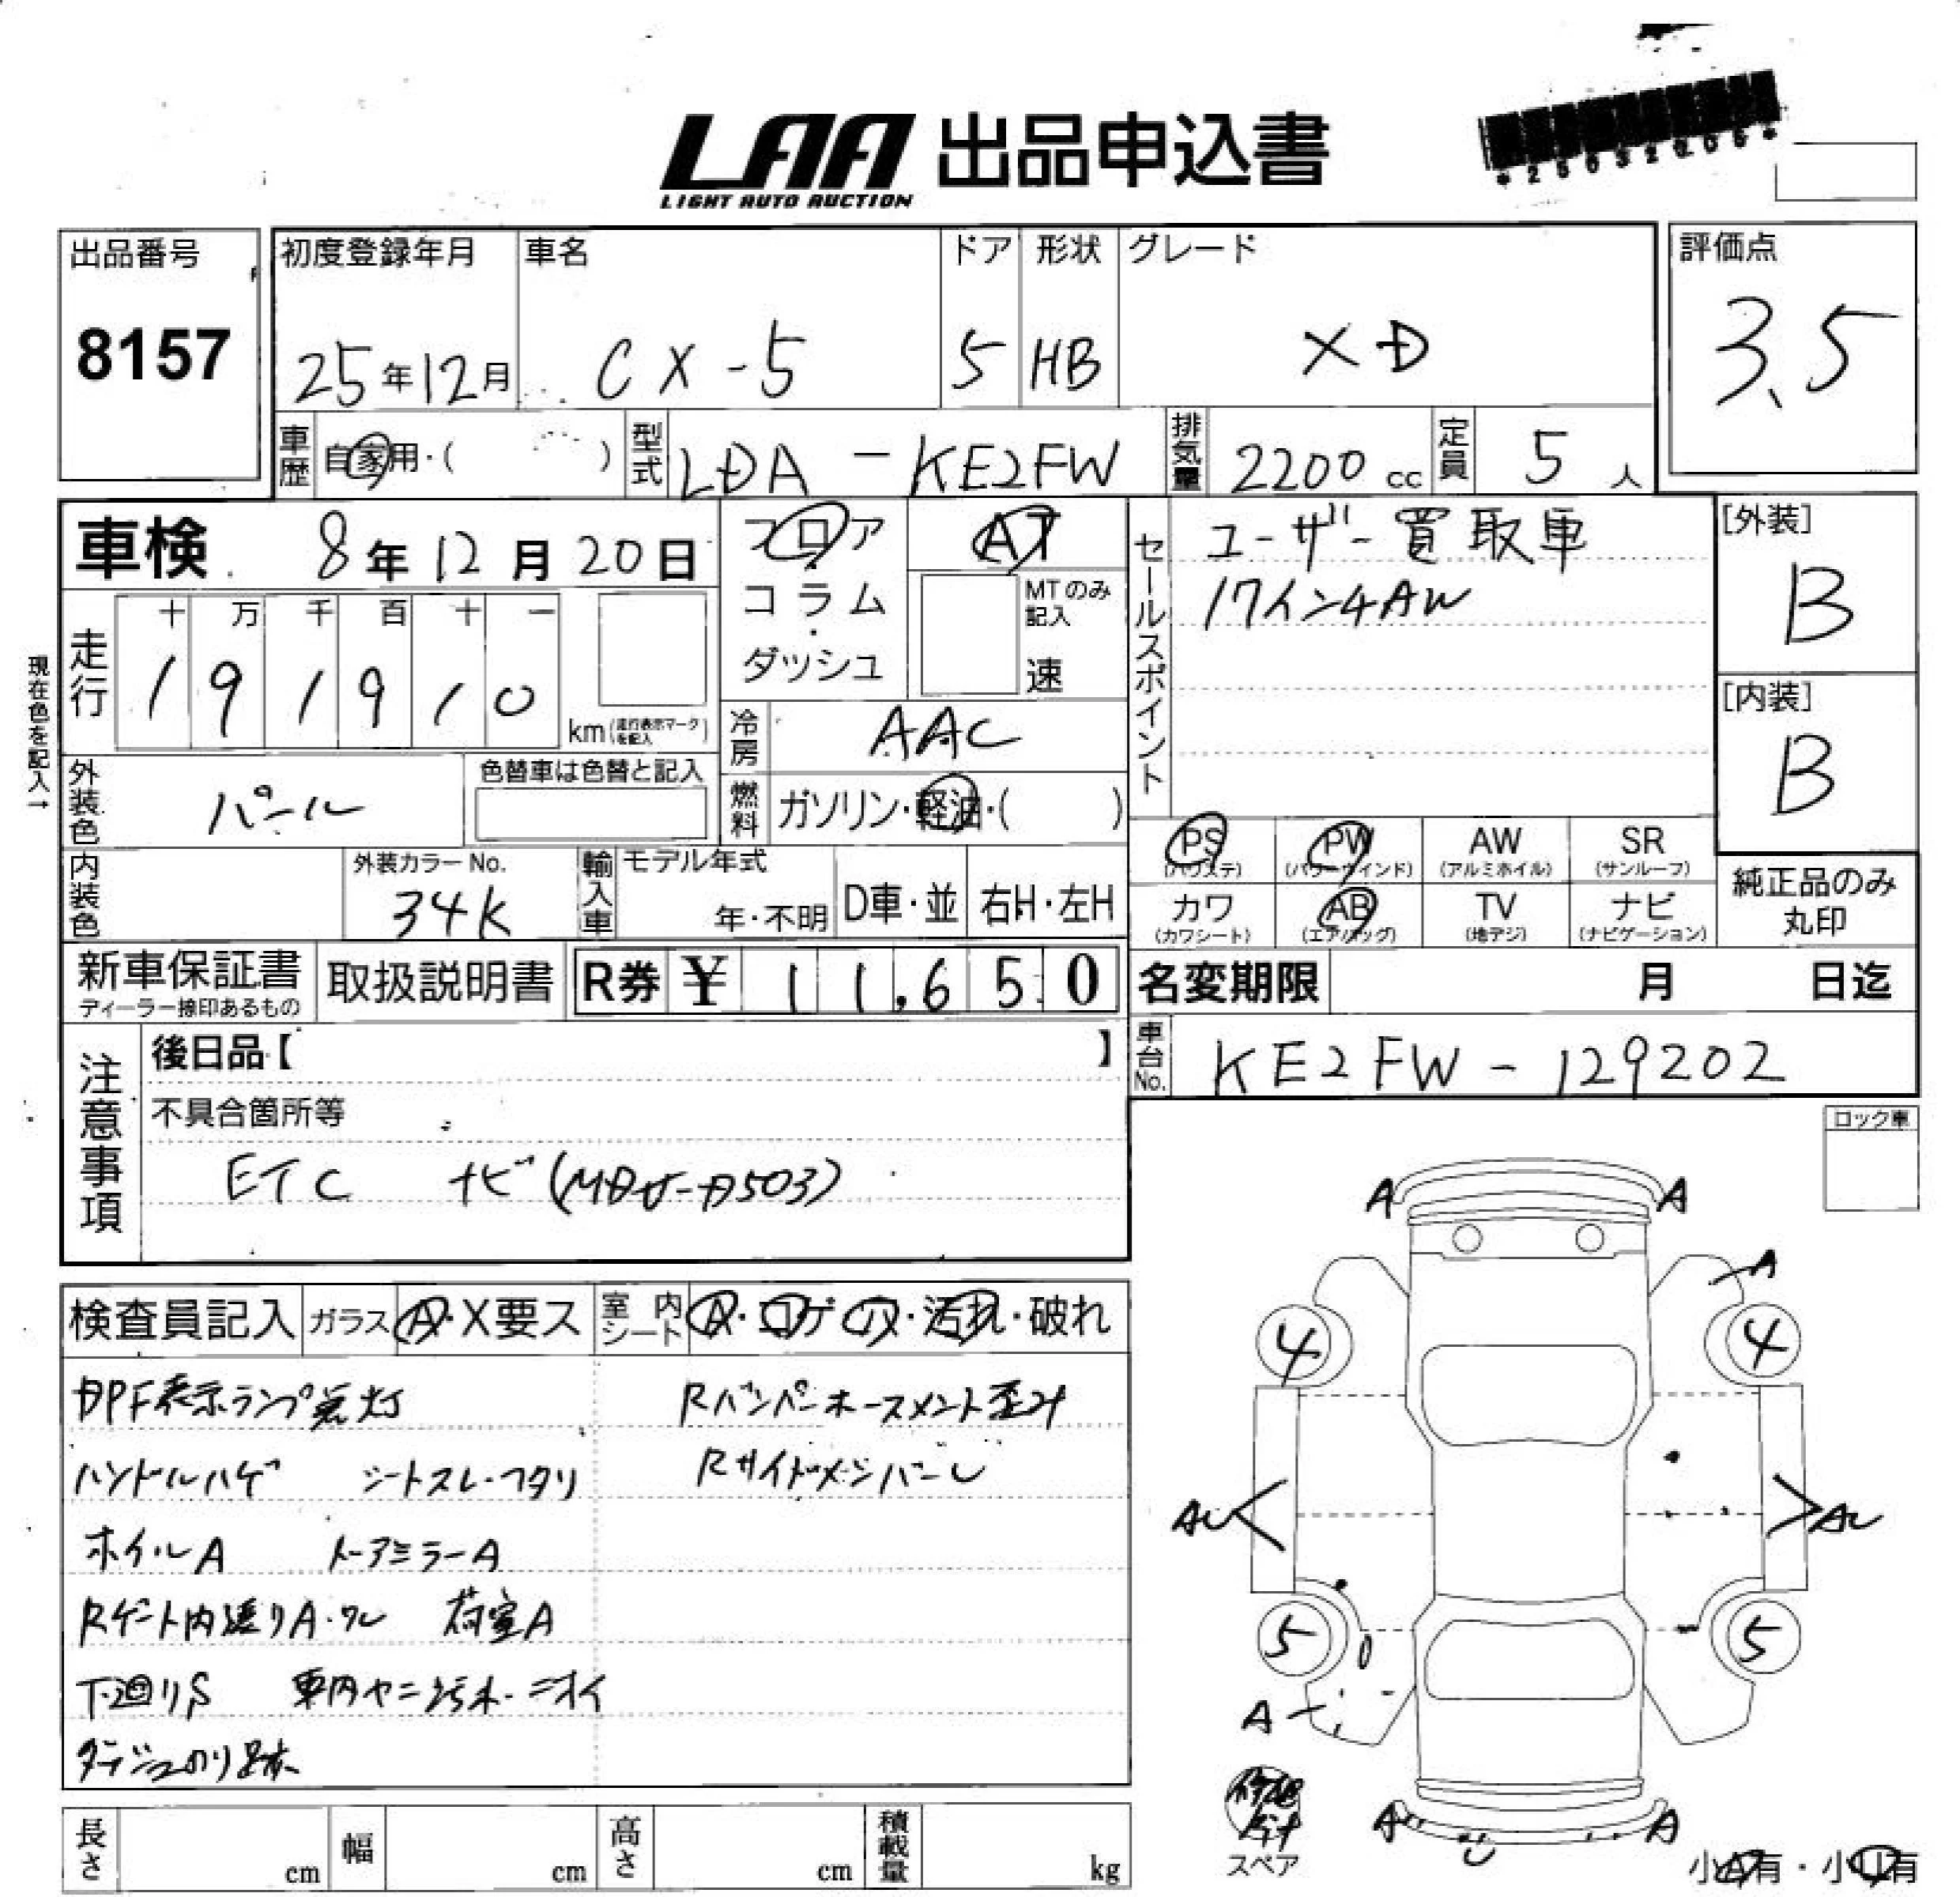 LAA 出品申込書
LIGHT AUTO AUCTION
*25032006*
出品番号 8157
初度登録年月 25年12月
車名 CX-5
ドア 5
形状 HB
グレード XD
評価点 3.5
車歴 自家用・( )
型式 LDA-KE2FW
排気量 2200cc
定員 5人
車検 8年12月20日
フロア・コラム・ダッシュ
AT
MTのみ記入 速
セールスポイント
ユーザー買取車
17インチAW
[外装] B
[内装] B
現在色を記入→
走行 十万千百十一
191910 km(走行表示マークを記入)
冷房 AAC
外装色 パール
色替車は色替と記入
燃料 ガソリン・軽油・( )
内装色
外装カラーNo. 34K
輸入車 モデル年式 年・不明
D車・並 右H・左H
PS (パワステ) PW (パワーウィンド) AW (アルミホイル) SR (サンルーフ)
カワ (カワシート) AB (エアバッグ) TV (地デジ) ナビ (ナビゲーション)
純正品のみ丸印
新車保証書 ディーラー捺印あるもの
取扱説明書
R券 ¥11,650
名変期限 月 日迄
車台No. KE2FW-129202
注意事項
後日品【 】
不具合箇所等
ETC ナビ
ロック車
検査員記入 ガラス A・X要ス
室内シート A・コゲ 穴・汚れ・破れ
DPF表示ランプ点灯 Rバンパーホースメント歪み
ハンドルハゲ シートスレ・ヘタリ
ホイルA ドアミラーA
Rゲート内張りA・ワレ 荷室A
下廻りS 車内ヤニ汚れ・ニオイ
ダッシュのり跡
A A
A
4 4
AU AU
5 5
A
A A
U
スペア
長さ cm 幅 cm 高さ cm 積載量 kg
小A有・小U有